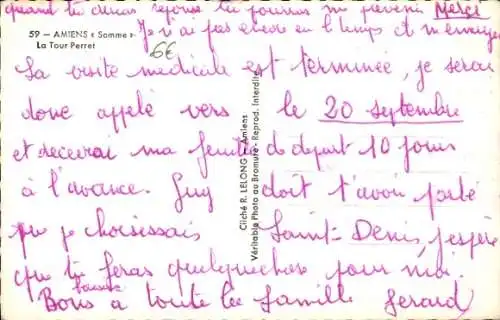 quand tu auras reponse tu pourras me prevenir Merci
59 – AMIENS « Somme »
La Tour Perret
Je n'ai pas encore eu l'temps et m'ennuyer
6€
La visite medicale est terminée, je serai
donc appelé vers le 20 septembre
et recevrai ma feuille de depart 10 jours
à l'avance. Guy doit t'avoir parlé
que je choisissais Saint-Denis, j'espère
que tu feras quelquechose pour moi.
Bons baisers a toute la famille Gerard
Cliché R. LELONG - Amiens
Véritable Photo au Bromure - Reprod. Interdite